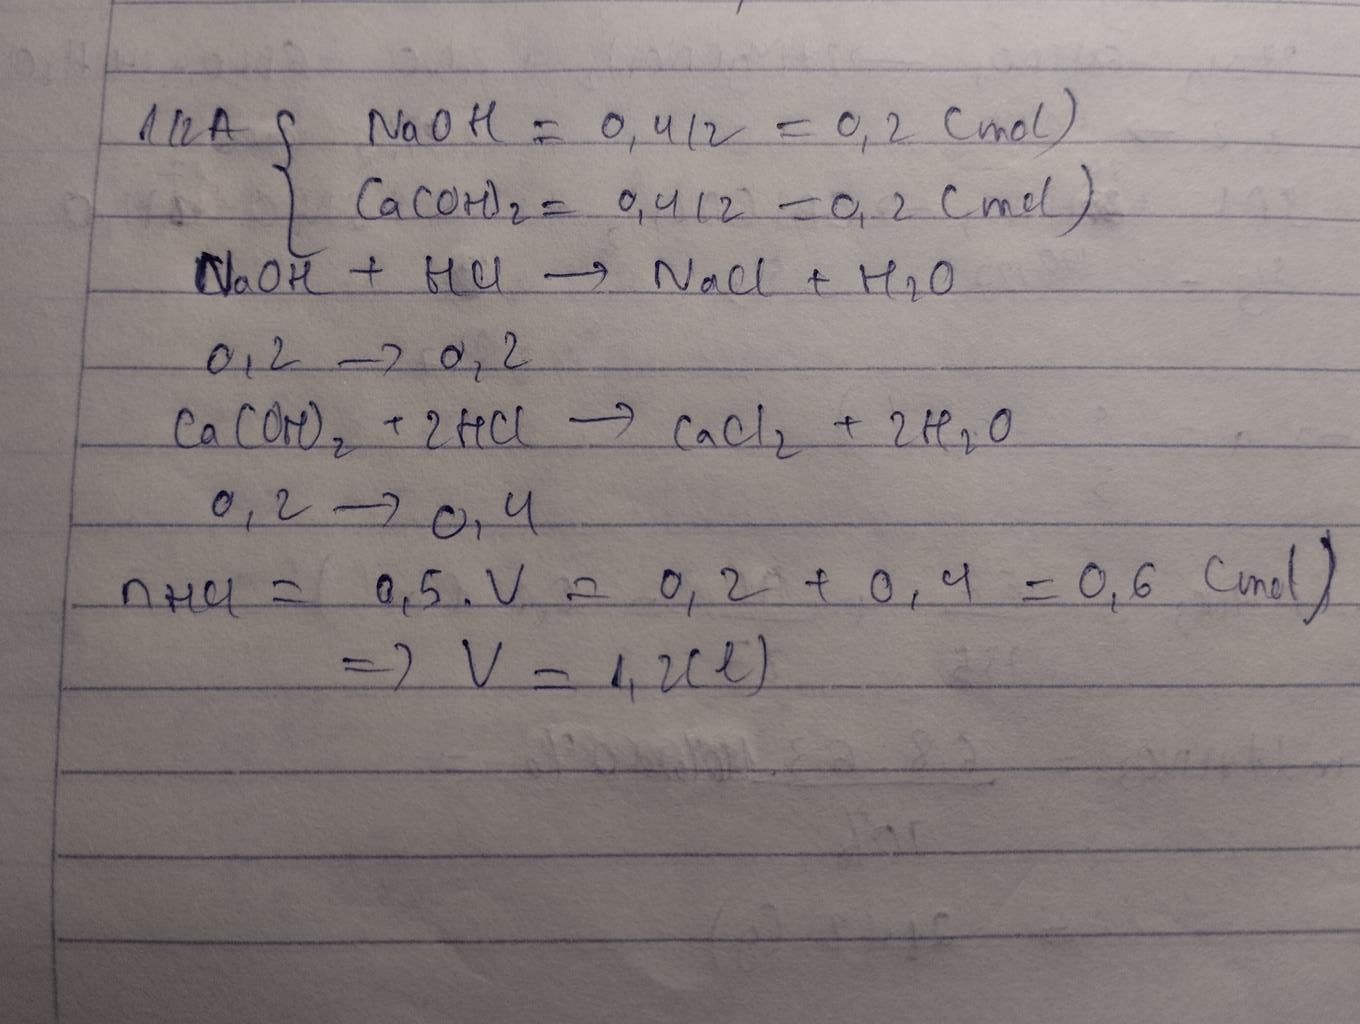 1/2A { NaOH = 0,4/2 = 0,2 (mol)
Ca(OH)2 = 0,4/2 = 0,2 (mol)
NaOH + HCl → NaCl + H2O
0,2 → 0,2
Ca(OH)2 + 2HCl → CaCl2 + 2H2O
0,2 → 0,4
nHCl = 0,5.V = 0,2 + 0,4 = 0,6 (mol)
=> V = 1,2(l)